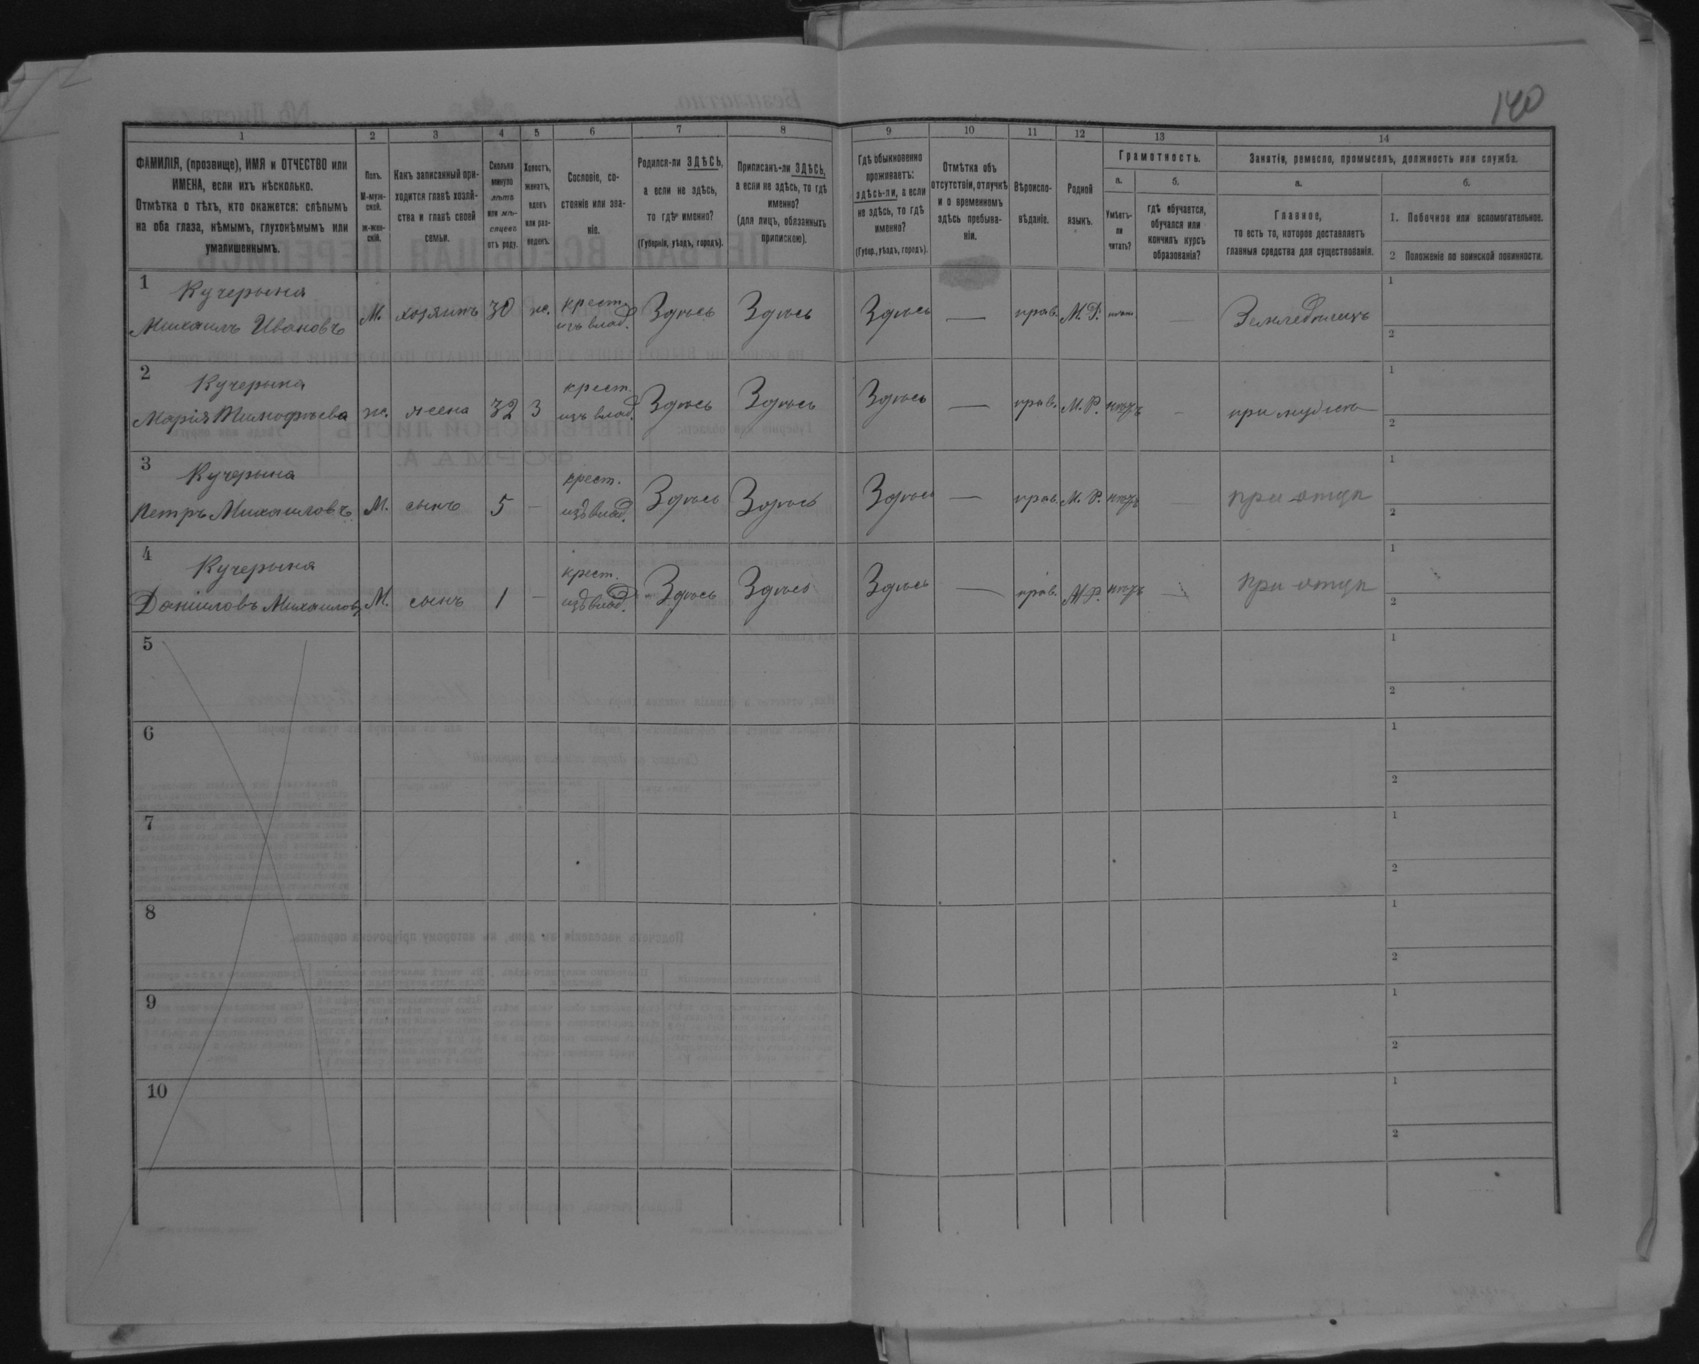 140
1
2
3
4
5
6
7
8
9
10
11
12
13
14
ФАМИЛІЯ, (прозвище), ИМЯ и ОТЧЕСТВО или
ИМЕНА, если ихъ нѣсколько.
Отмѣтка о тѣхъ, кто окажется: слѣпымъ
на оба глаза, нѣмымъ, глухонѣмымъ или
умалишеннымъ.
Полъ.
М-муж-
ской.
ж-жен-
скій.
Какъ записанный при-
ходится главѣ хозяй-
ства и главѣ своей
семьи.
Сколько
минуло
лѣтъ
или мѣ-
сяцевъ
отъ роду.
Холостъ,
женатъ,
вдовъ
или раз-
веденъ.
Сословіе, со-
стояніе или зва-
ніе.
Родился-ли ЗДѢСЬ,
а если не здѣсь,
то гдѣ именно?
(Губернія, уѣздъ, городъ).
Приписанъ-ли ЗДѢСЬ,
а если не здѣсь, то гдѣ
именно?
(для лицъ, обязанныхъ
припискою).
Гдѣ обыкновенно
проживаетъ:
здѣсь-ли, а если
не здѣсь, то гдѣ
именно?
(Губер., уѣздъ, городъ).
Отмѣтка объ
отсутствіи, отлучкѣ
и о временномъ
здѣсь пребыва-
ніи.
Вѣроиспо-
вѣданіе.
Родной
языкъ.
Грамотность.
а.
б.
Умѣетъ-
ли
читать?
гдѣ обучается,
обучался или
кончилъ курсъ
образованія?
Занятіе, ремесло, промыселъ, должность или служба.
а.
б.
Главное,
то есть то, которое доставляетъ
главныя средства для существованія.
1. Побочное или вспомогательное.
2 Положеніе по воинской повинности.
1
Кучерына
Михаилъ Ивановъ
М. хозяинъ 30 ж. крест.
изъ влад. Здѣсь Здѣсь Здѣсь — прав. М.Р. — Земледѣлецъ
1
2
2
Кучерына
Марія Тимофѣева
ж. жена 32 3 крест.
изъ влад. Здѣсь Здѣсь Здѣсь — прав. М.Р. нѣтъ — при мужѣ
1
2
3
Кучерына
Петръ Михаиловъ
М. сынъ 5 — крест.
изъ влад. Здѣсь Здѣсь Здѣсь — прав. М.Р. нѣтъ — при отцѣ
1
2
4
Кучерына
Даніиловъ Михаиловъ
М. сынъ 1 — крест.
изъ влад. Здѣсь Здѣсь Здѣсь — прав. М.Р. нѣтъ — при отцѣ
1
2
5
1
2
6
1
2
7
1
2
8
1
2
9
1
2
10
1
2